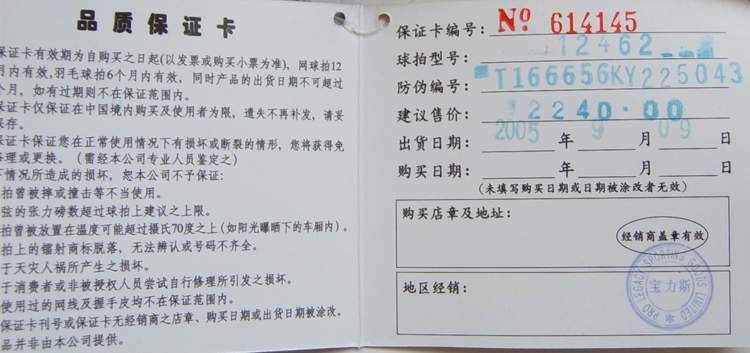 品质保证卡
保证卡有效期为自购买之日起(以发票或购买小票为准),网球拍12
月内有效,羽毛球拍6个月内有效,同时产品的出货日期不可超过
个月,如有过则不在保证范围内。
保证卡仅保证在中国境内购买及使用者为限,遗失不再补发,请妥
保存。
证卡保证您在正常使用情况下有损坏或断裂的情形,您将获得免
修理或更换。(需经本公司专业人员鉴定之)
下情况所造成的损坏,恕本公司不予保证:
拍曾被摔或撞击等不当使用。
弦的张力磅数超过球拍上建议之上限。
拍曾被放置在温度可能超过摄氏70度之上(如阳光曝晒下的车厢内)。
拍上的镭射商标脱落,无法辨认或号码不齐全。
于天灾人祸所产生之损坏。
于消费者或非被授权人员尝试自行修理所引发之损坏。
使用过的网线及握手皮均不在保证范围内。
保证卡刊号或保证卡无经销商之店章、购买日期或出货日期被涂改。
品并非由本公司提供。
保证卡编号: Nº 614145
球拍型号: 12462
防伪编号: T166656KY225043
建议售价: 2240.00
出货日期: 2005 年 9 月 09 日
购买日期: 年 月 日
(未填写购买日期或日期被涂改者无效)
购买店章及地址:
经销商盖章有效
地区经销:
PRO LEGACY SPORTING GOODS LIMITED
宝力斯